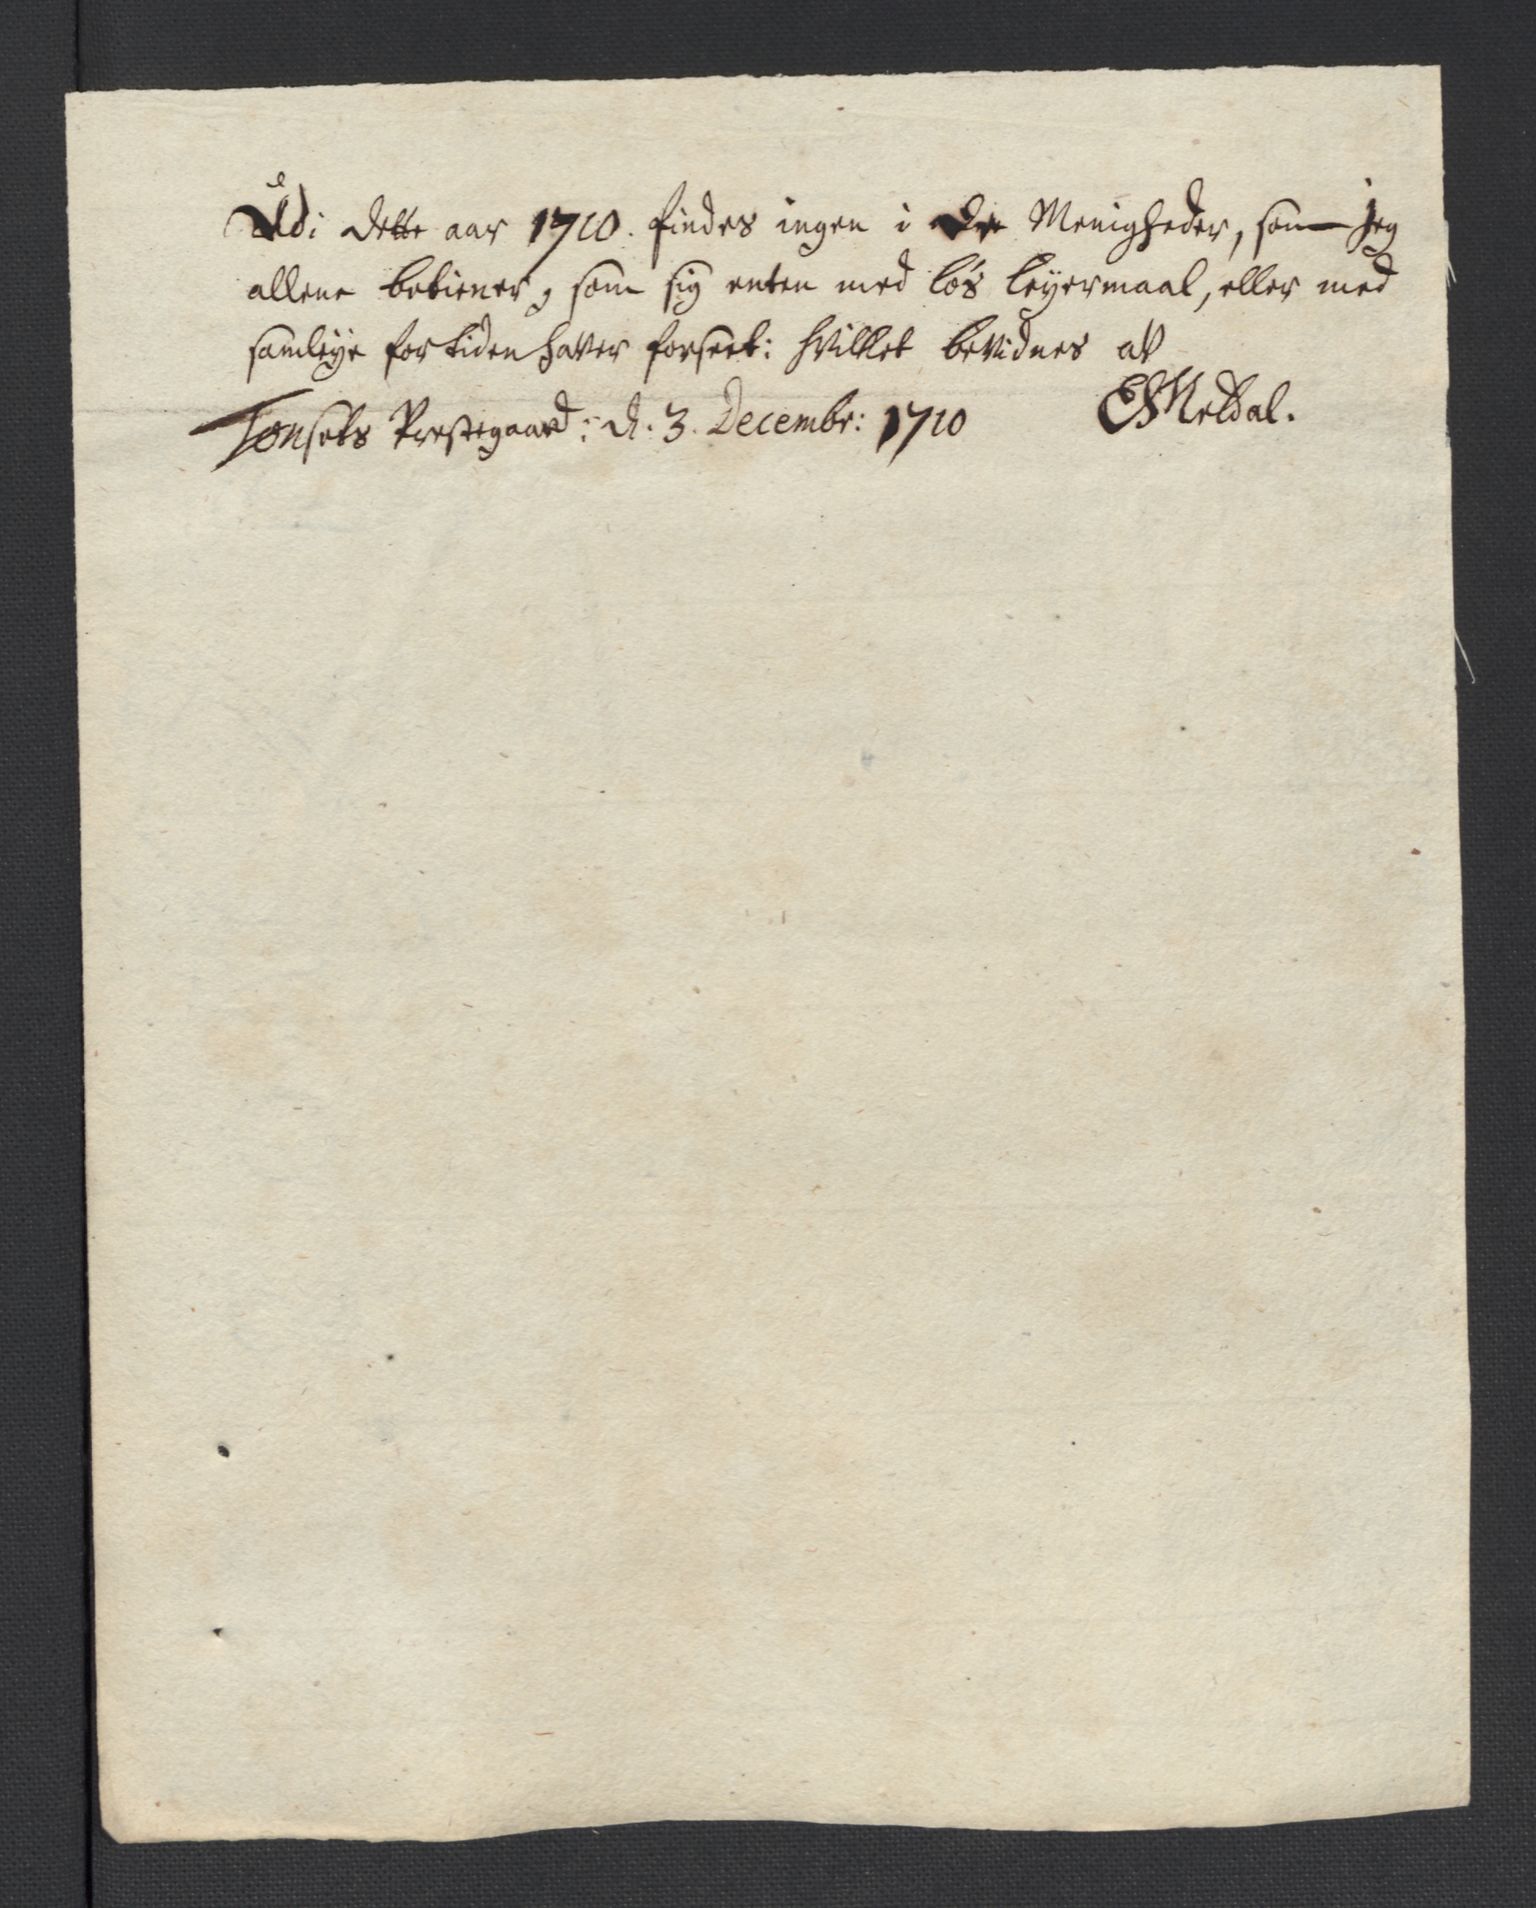 Udi dette aar 1710. findes ingen i de Menigheder, som jeg
allene betiener, som sig enten med løs leyermaal, eller med
samleye for tiden haver forseet: hvilket bevidnes af
Tønsets Prestegaard: d. 3. Decembr: 1710 ESMeldal.